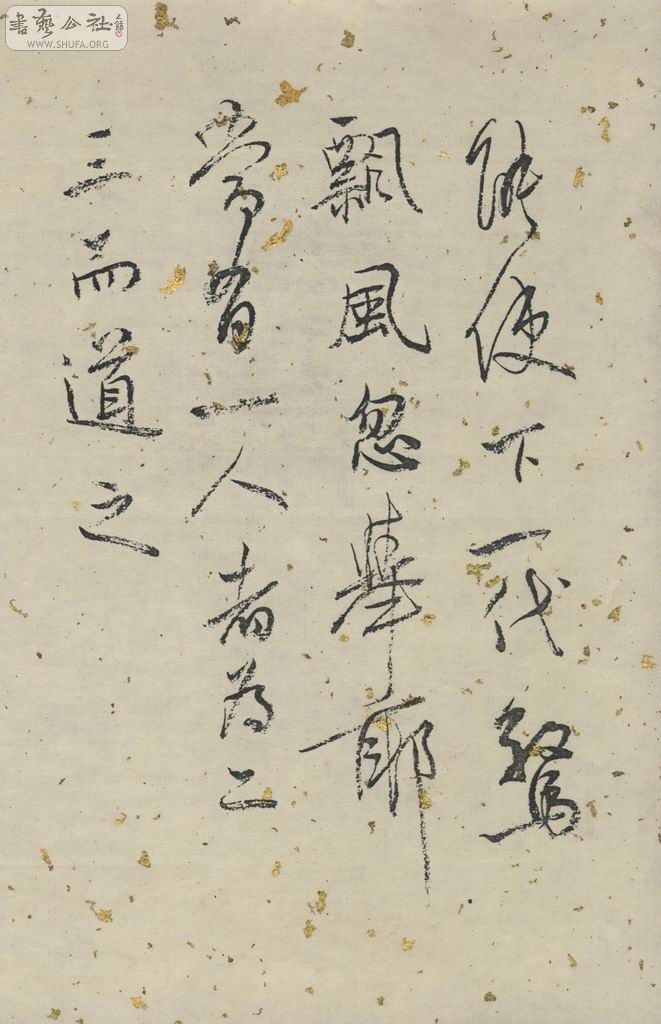 書藝公社
WWW.SHUFA.ORG
能使下一代驚
飄風忽舉耶
常有一人者為二
三而道之